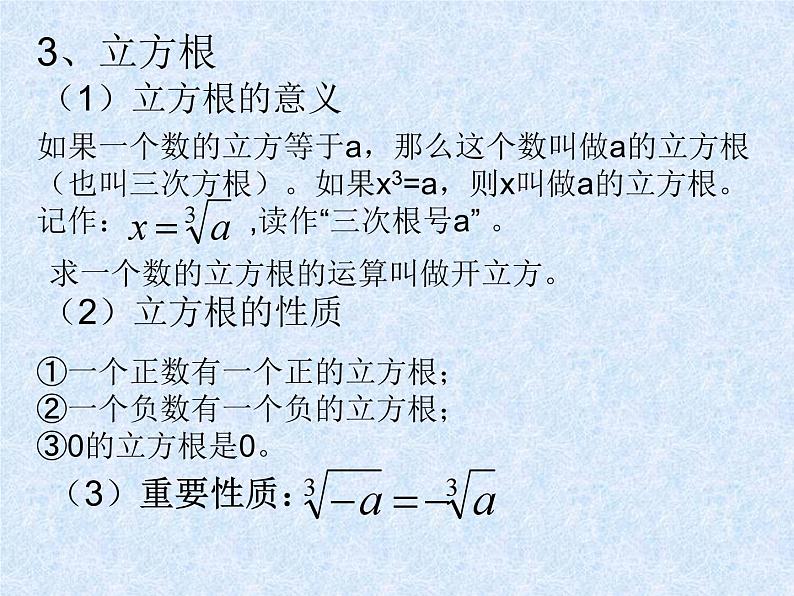 3、立方根
（1）立方根的意义
如果一个数的立方等于a，那么这个数叫做a的立方根
（也叫三次方根）。如果x³=a，则x叫做a的立方根。
记作：x=∛a ,读作“三次根号a” 。
求一个数的立方根的运算叫做开立方。
（2）立方根的性质
①一个正数有一个正的立方根；
②一个负数有一个负的立方根；
③0的立方根是0。
（3）重要性质：∛-a=-∛a